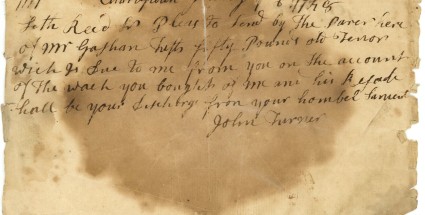 Seth Reed Sr Pleas to Send by the barer here
of Mr Goshan Tufts fifty Pounds old Tenor
wich Is due to me from you on the account
of the wach you bought of me and his Resate
shall be your discharge from your hombel Sarvent
John Turner